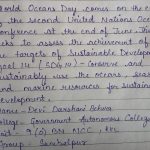 World Oceans Day comes on the e
y the second United Nations Ocea
onference at the end of June, thi
eeks to assess the achievement of
e targets of Sustainable Developm
Goal 14" (SDG 14) - Conserve and
ustainably use the oceans, seas
nd marine resources for sustain
evelopment.
ame:- Devi Darshani Behera
Government Autonomous College
it - 9 (O) BN NCC,
roup:- Sambalpur